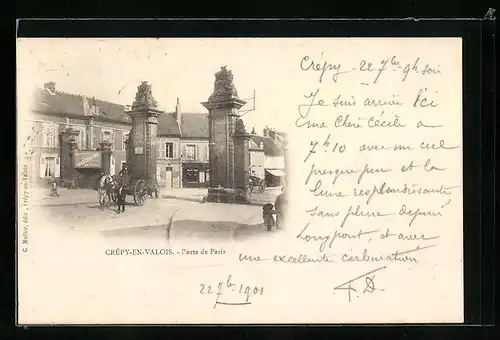 Crépy - 22 7bre 9h soir
Je suis arrivé Ici
ma Chère Cécile a
7h 10 avec un ciel
presque pur et la
lune resplendissante
sans pluie depuis
Longpont, et avec
une excellente carburation
F.D.
22 7bre 1901
CRÉPY-EN-VALOIS. - Porte de Paris
Crépy-en-Valois